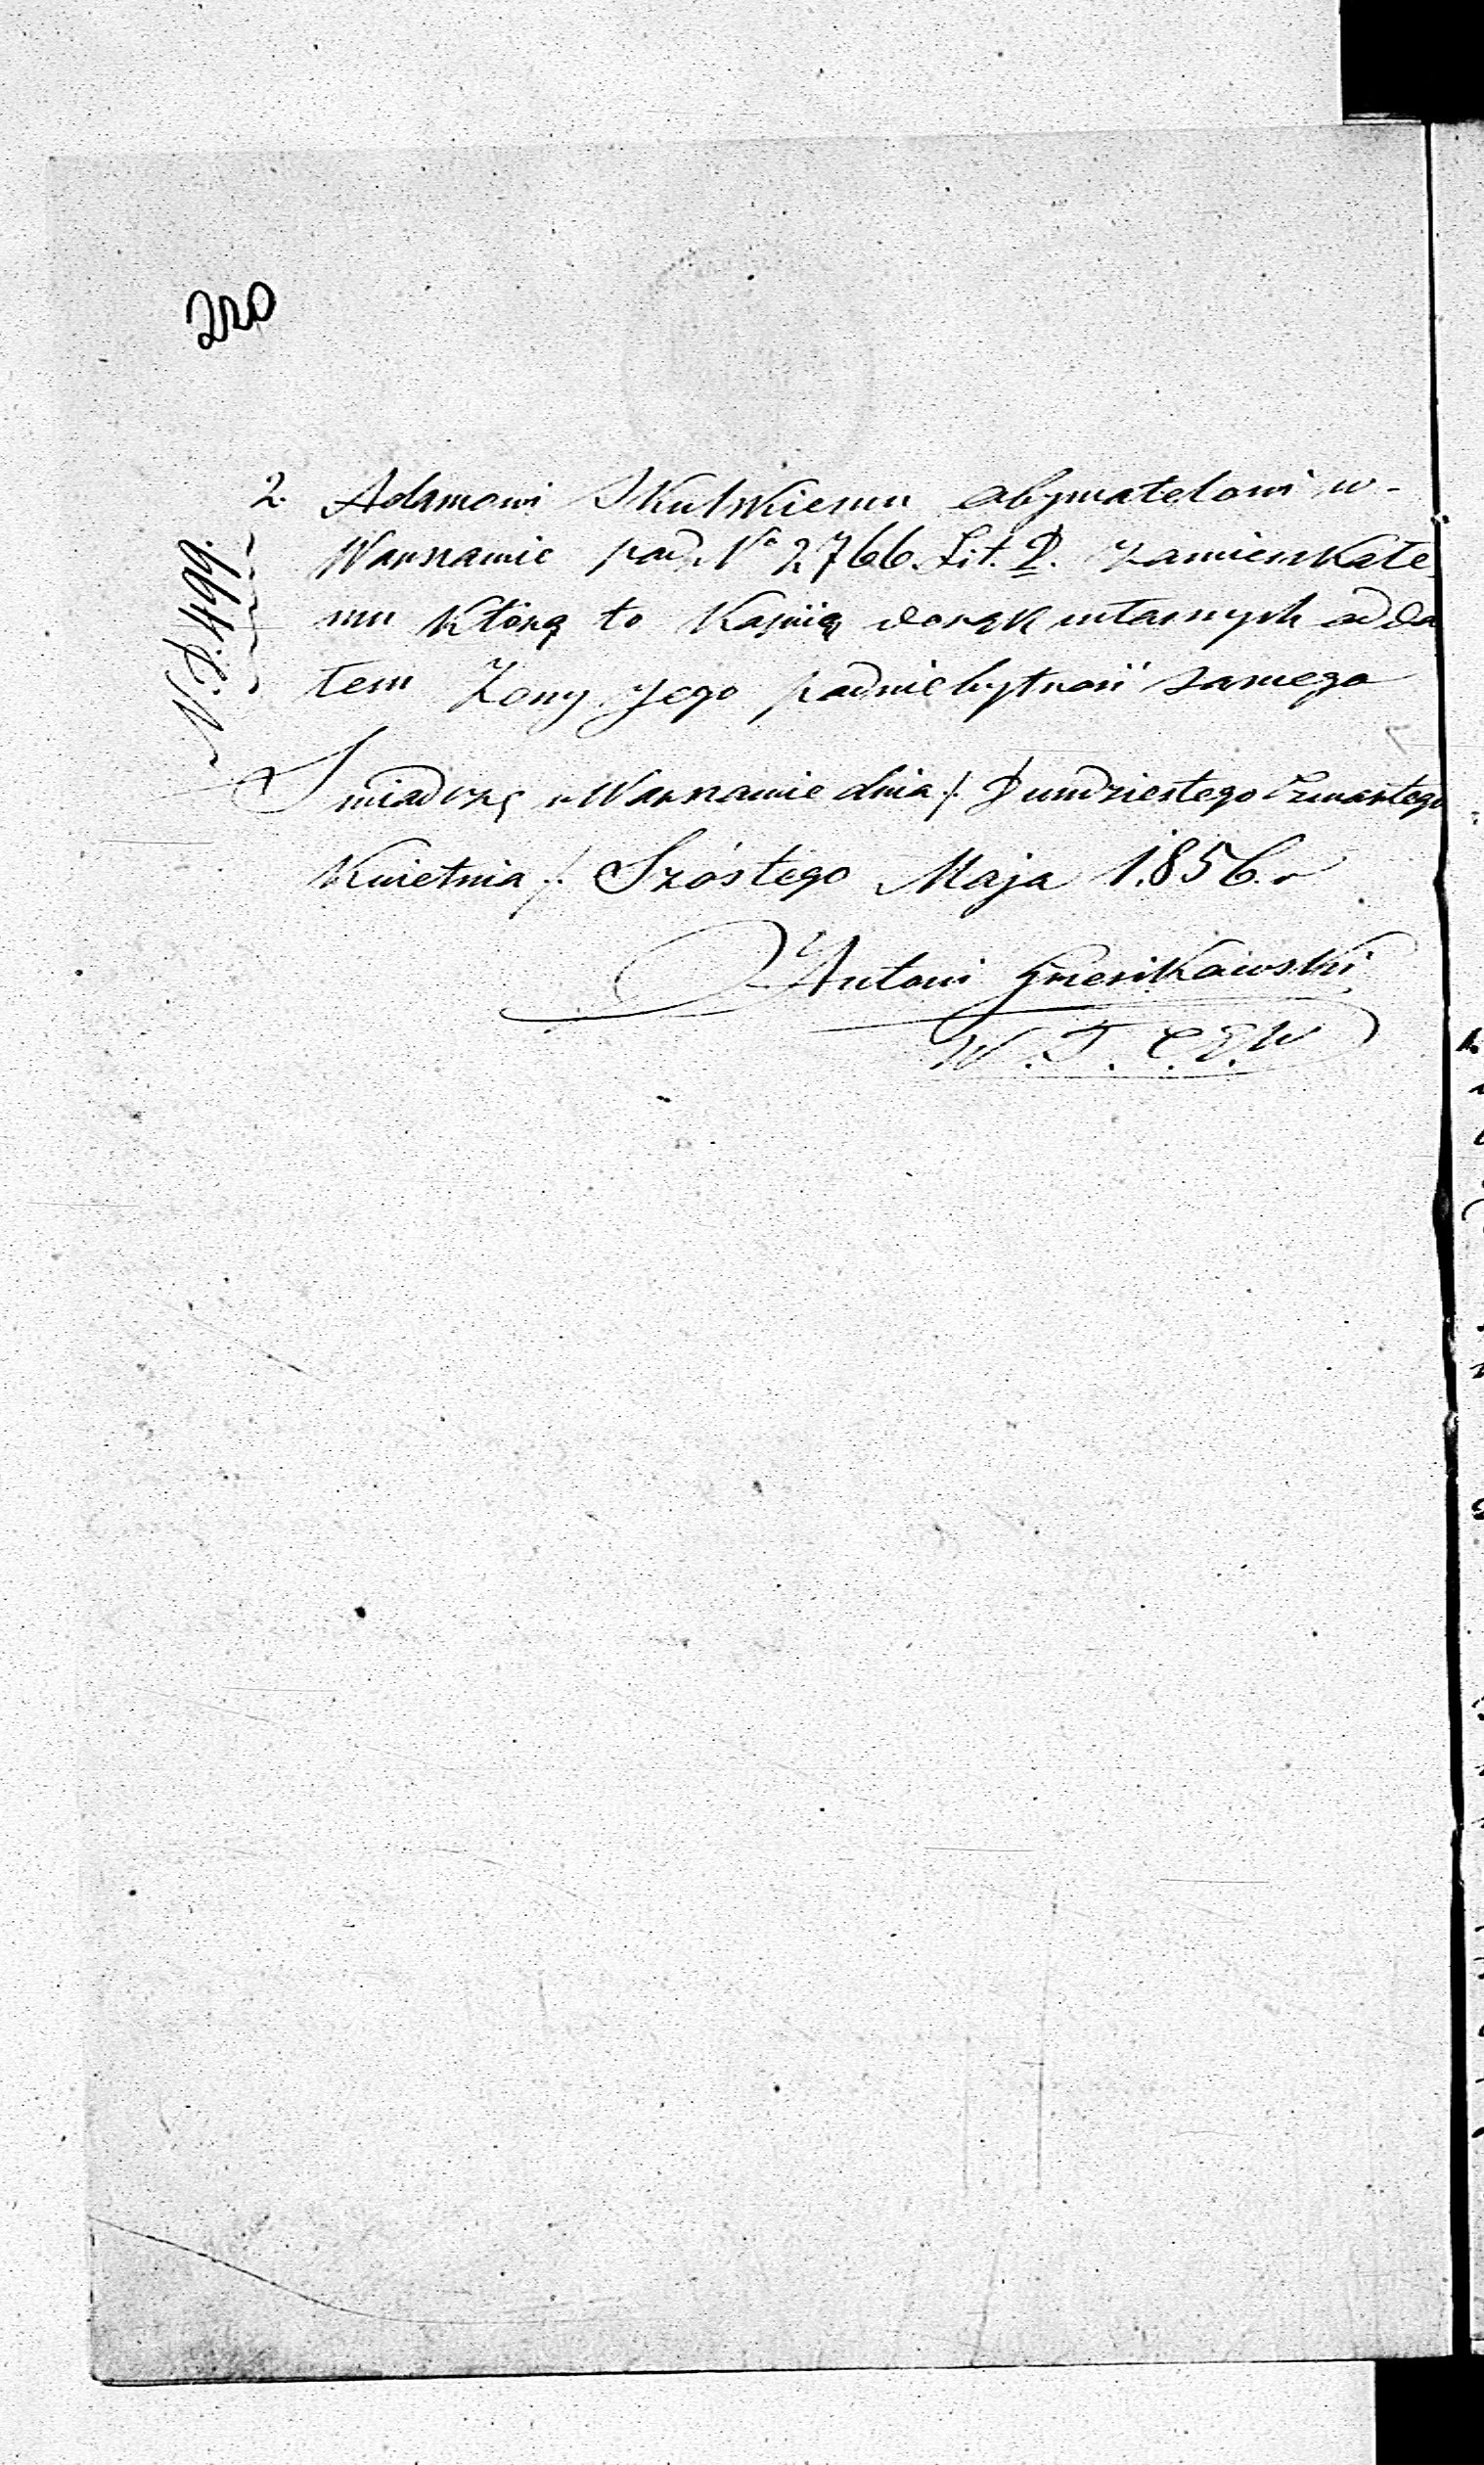 220
N. D. 499.
2. Adamowi Skulskiemu obywatelowi w-
Warszawie pod No 2766. Lit. D. zamieszkałe
mu którą to Kopiią do rąk własnych odda
łem Żony jego podniebytność samego
Świadczę w Warszawie dnia /. Dwudziestego Czwartego
Kwietnia /. Szóstego Maja 1856. r
Antoni
W. T. C. G. W